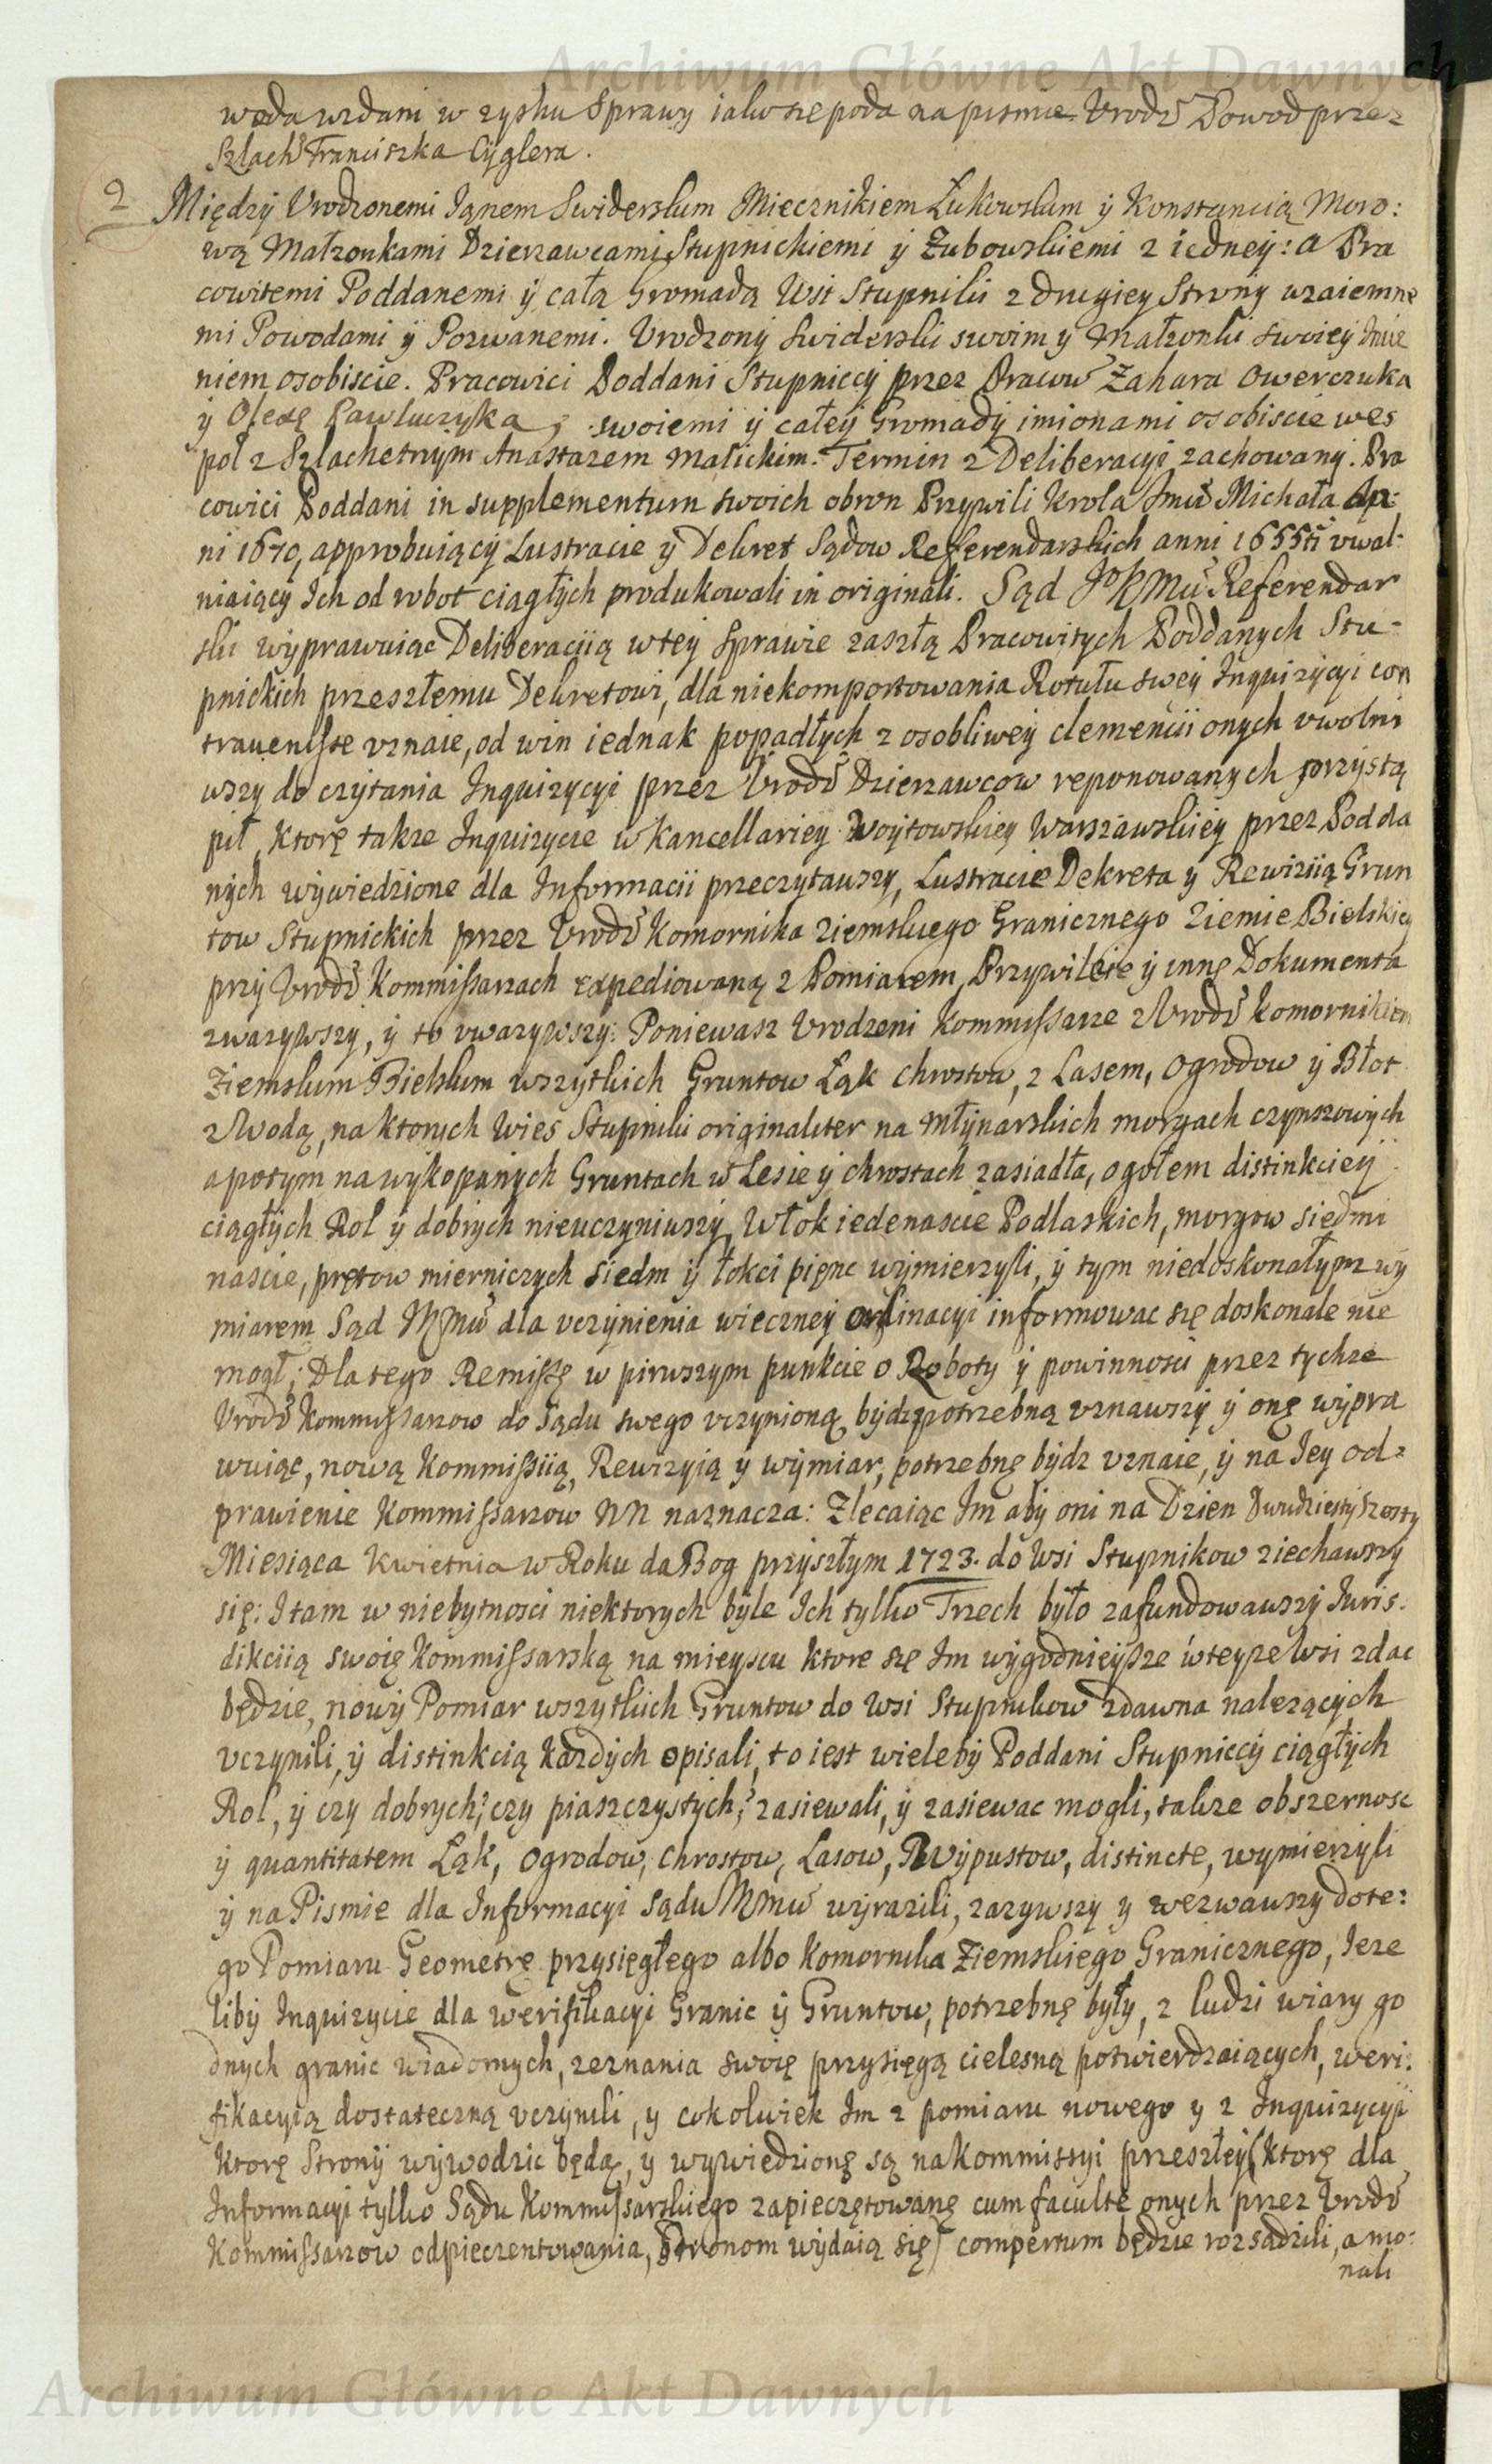 Archiwum Główne Akt Dawnych
woda wzdani w zysku Sprawy iako się poda na pismie. Urodź Dowod przez
Szlach Franciszka Cyglera.
2
Między Urodzonemi Janem Swiderskim Miecznikiem Łukowskim ÿ Konstancią Moro:
wą Małzonkami Dzierzawcami Stupnickiemi ÿ Zubowskiemi z iedneÿ: a Pra
cowitemi Poddanemi ÿ całą Gromadą Wsi Stupniki z drugiey Strony wzaiemne
mi Powodami ÿ Pozwanemi. Urodzony Swiderski swoim y Małzonki swoieÿ Imie
niem osobiscie. Pracowici Poddani Stupniccÿ przez Pracow Zahara Owerczuka
ÿ Olexę Pawluczyka, swoiemi ÿ całeÿ Gromadÿ imionami osobiscie wes
poł z Szlachetnym Anastazem Malickim. Termin z Deliberacyi zachowanÿ. Pra
cowici Poddani in supplementum swoich obron Przywili Krola Jmci Michała An:
ni 1670, approbuiącÿ Lustracie y Dekret Sądow Referendarskich anni 1655ti uwal:
niaiący Ich od robot ciągłÿch produkowali in originali. Sąd JoKMci Referendar
ski wÿprawuiąc Deliberaciią w teÿ Sprawie zaszłą Pracowitych Poddanych Stu-
pnickich przeszłemu Dekretowi, dla niekomportowania Rotułu sweÿ Inquizycyi con
traueniste uznaie, od win iednak popadłÿch z osobliweÿ clemencii onych uwolni
wszy do czytania Inquizycyi przez Urodź Dzierzawcow reponowanych przÿstą
pił, ktorę takze Inquizycie w Kancellarieÿ Woytowskieÿ Warszawskieÿ przez Podda
nÿch wÿwiedzione dla Informacii przeczytawszy, Lustracie Dekreta ÿ Rewiziią Grun
tow Stupnickich przez Urodź Komornika Ziemskiego Granicznego Ziemie Bielskieÿ
przÿ Urodź Kommissarzach expediowaną z Pomiarem, Przywileie ÿ innę Dokumenta
zwazywszÿ, ÿ to uwazywszÿ: Poniewasz Urodzeni Kommissarze z Urodź Komornikiem
Ziemskim Bielskim wszytkich Gruntow Łąk chrostow, z Lasem, Ogrodow ÿ Błot
z Wodą, na ktorych Wies Stupniki originaliter na Młÿnarskich morgach czynszowÿch
a potym na wÿkopanÿch Gruntach w Lesie ÿ chrostach zasiadła, ogołem distinkcieÿ
ciągłÿch Rol ÿ dobrÿch nieuczyniwszÿ, Włok iedenascie Podlaskich, morgow siedmi
nascie, prętow mierniczych siedm ÿ łokci pięnc wÿmierzyli, ÿ tym niedoskonałÿm wÿ
miarem Sąd JKMci dla uczÿnienia wieczneÿ ordinacyi informowac się doskonale nie
mogł; Dla tego Remissę w pirwszym punkcie o Roboty ÿ powinnosci przez tychze
Urodź Kommissarzow do Sądu swego uczynioną bÿdz potrzebną uznawszÿ ÿ onę wÿpra
wuiąc, nową Kommissiią, Rewizyią ÿ wÿmiar, potrzebnę bÿdz uznaie, ÿ na Ieÿ od-
prawienie Kommissarzow NN naznacza: Zlecaiąc Im abÿ oni na Dzien Dwudziestÿ Szosty
Miesiąca Kwietnia w Roku da Bog przÿszłym 1723. do Wsi Stupnikow ziechawszy
się: I tam w niebytnosci niektorych bÿle Ich tylko Trzech bÿło zafundowawszÿ Iuris-
dikciią swoię Kommissarską na mieyscu ktore się Im wÿgodnieÿsze w teÿze Wsi zdac
będzie, nowÿ Pomiar wszytkich Gruntow do Wsi Stupnikow zdawna nalezącÿch
uczynili, ÿ distinkcią kazdÿch opisali, to iest wielebÿ Poddani Stupniccÿ ciągłÿch
Rol, ÿ czy dobrych? czy piaszczystÿch? zasiewali, ÿ zasiewac mogli, takze obszernosc
ÿ quantitatem Łąk, Ogrodow, Chrostow, Lasow, Wÿpustow, distincte, wymierzÿli
ÿ na Pismie dla Informacyi Sądu JKMci wÿrazili, zazywszy y wezwawszy do te:
go Pomiaru Geometrę przysięgłego albo Komornika Ziemskiego Granicznego, Ieze
libÿ Inquizycie dla werifikacyi Granic ÿ Gruntow, potrzebnę bÿłÿ, z ludzi wiarÿ go
dnÿch granic wiadomych, zeznania swoię przysięgą cielesną potwierdzaiących, weri:
fikacyią dostateczną uczÿnili, y cokolwiek Im z pomiaru nowego y z Inquizycyi
ktorę Stronÿ wÿwodzic będą, y wywiedzionę są na Kommissyi przeszłeÿ (ktorę dla
Informacyi tylko Sądu Kommissarskiego zapieczętowanę cum facultē onych przez Urodź
Kommissarzow odpieczentowania, Stronom wÿdaią się) compertum będzie rozsądzili, a mo:
nali
Archiwum Główne Akt Dawnych